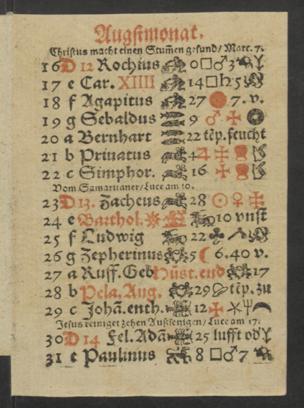 Augstmonat.
Christus macht einen Stum̃en gesund / Marc. 7.
16 D 12 Rochius 0 □ ♂ 3
17 e Car. XIIII 14 □ ♄ 25
18 f Agapitus 27 7. v.
19 g Sebaldus 9 ♂
20 a Bernhart 22 tẽp. feucht
21 b Priuatus 4 ♃
22 c Simphor. 16
Vom Samaritaner / Luce am 10.
23 D 13. Zacheus 28 ☉ ♀
24 e Barthol. 10 vnst
25 f Ludwig 22
26 g Zepherinus 5 ☾ 6. 40 v.
27 a Ruff. Geb Hũst. end 17
28 b Pela. Aug. 29 tẽp. zu
29 c Johã. enth. 12
Jesus reiniget zehen Aussetzigen / Luce am 17.
30 D 14 Fel. Adã 25 lufft od
31 e Paulinus 8 □ ♂ 7